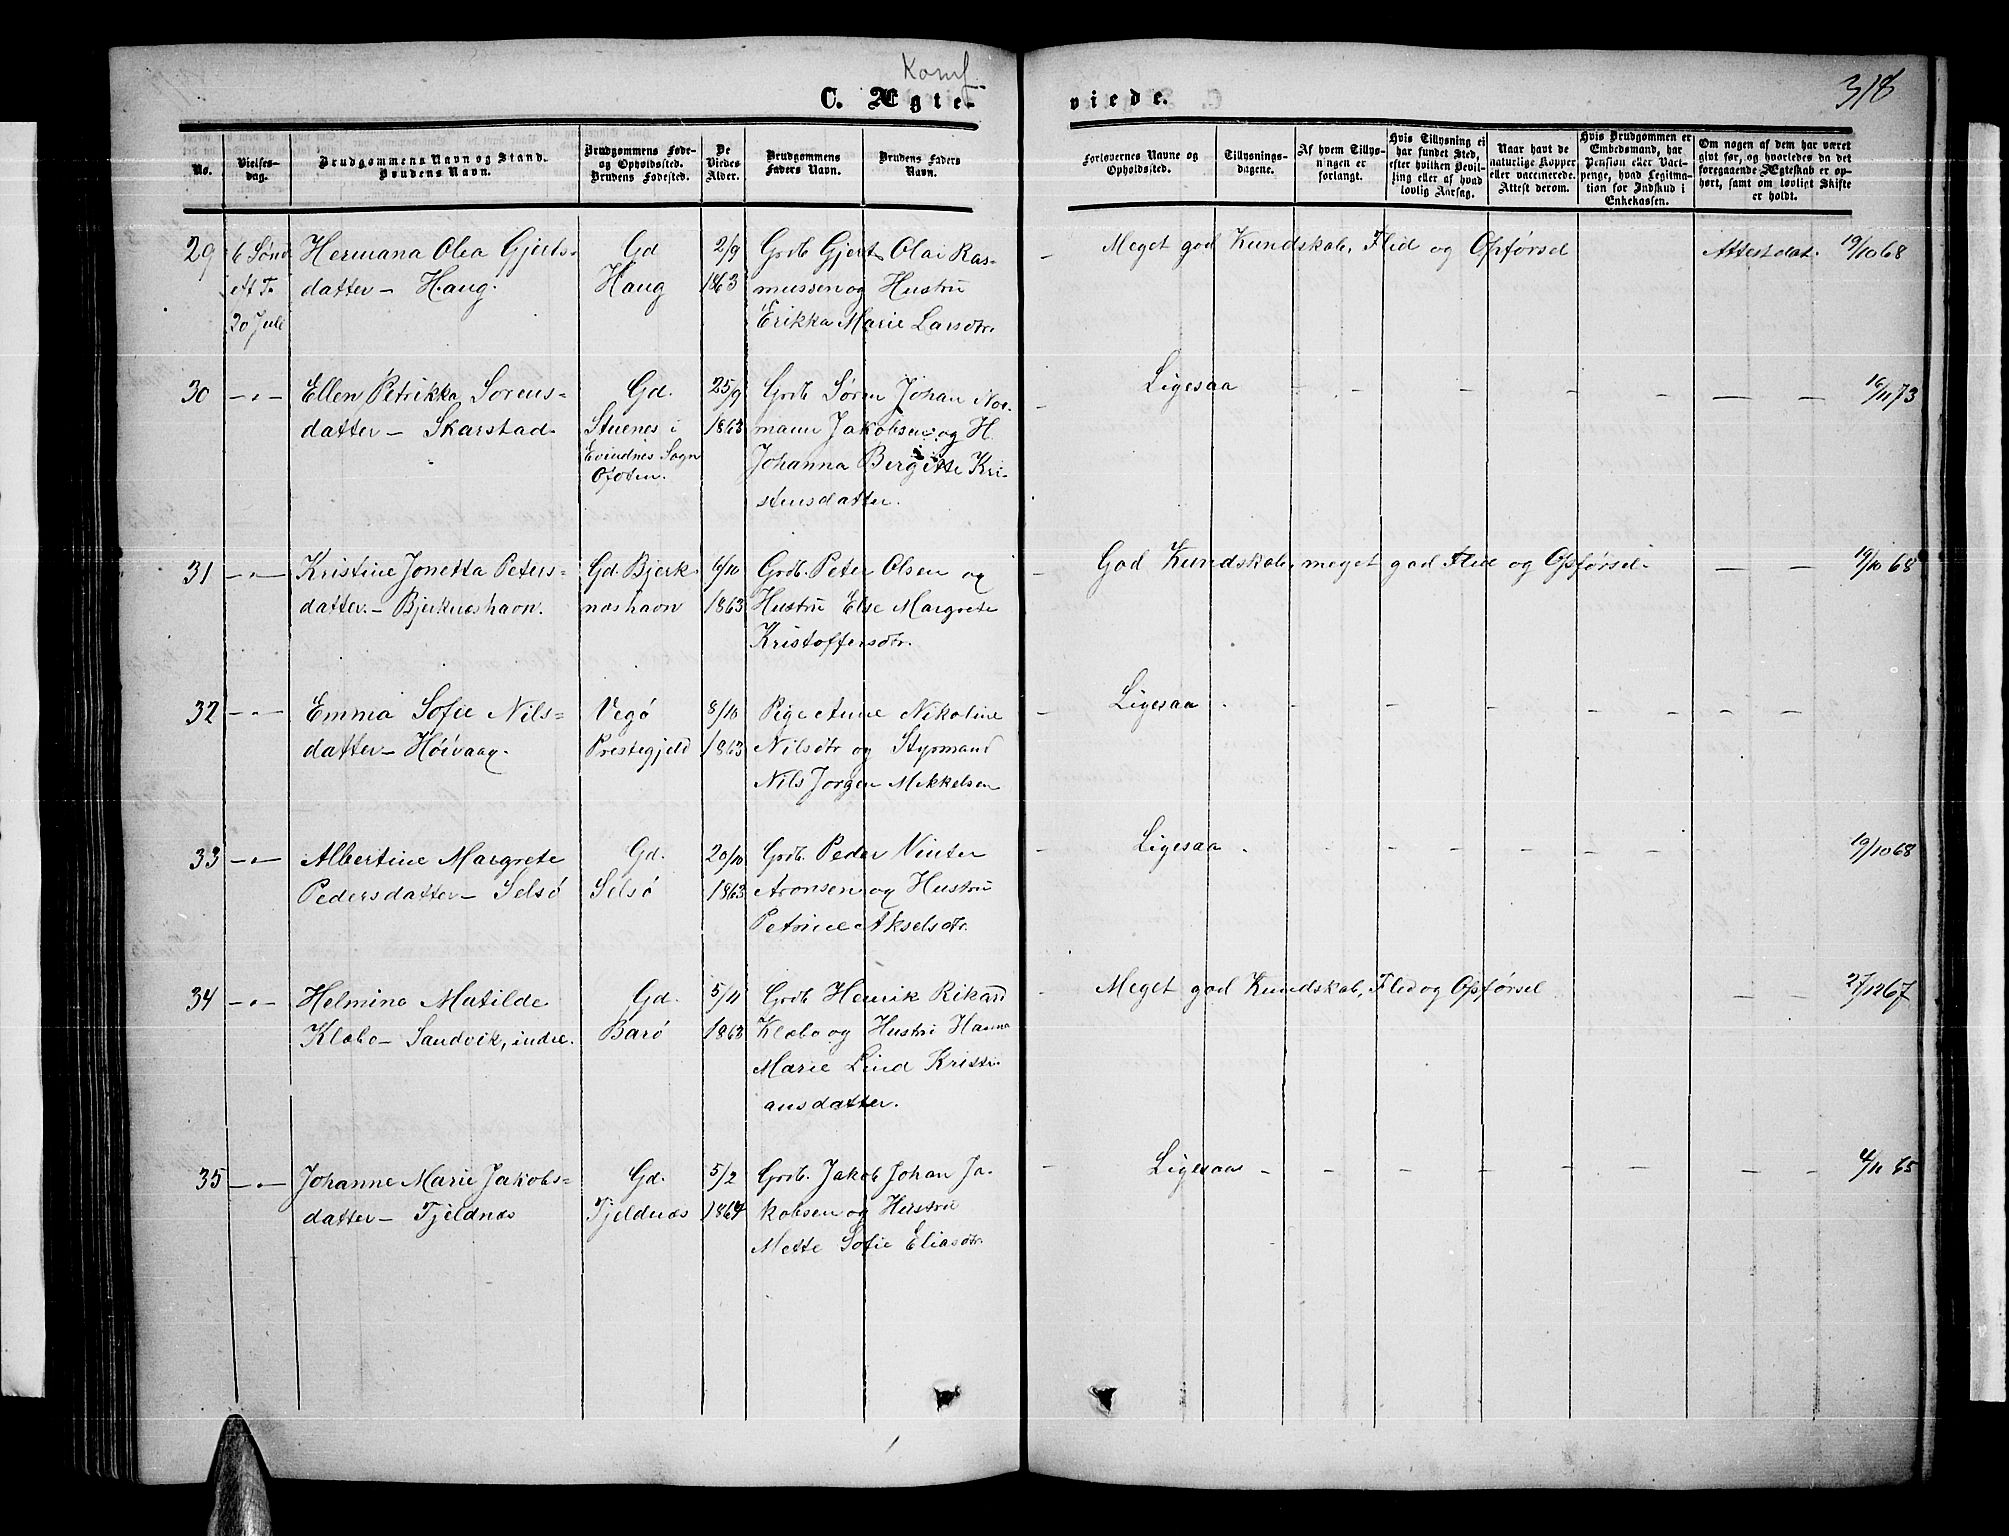 Konf.
C. Ægte-
viede.
318
No.
Vielses-
dag.
Brudgommens Navn og Stand.
Brudens Navn.
Brudgommens Føde-
og Opholdssted.
Brudens Fødested.
De
Viedes
Alder.
Brudgommens
Faders Navn.
Brudens Faders
Navn.
Forlovernes Navne og
Opholdssted.
Tillysnings-
dagene.
Af hvem Tillys-
ningen er
forlangt.
Hvis Tillysning ei
har fundet Sted,
efter hvilken Bevil-
ling eller af hvad
lovlig Aarsag.
Naar havt de
naturlige Kopper
eller vaccinerede.
Attest derom.
Hvis Brudgommen er
Embedsmand, har
Pension eller Vart-
penge, hvad Legitma-
tion for Indskud i
Enkekassen.
Om nogen af dem har været
givt før, og hvorledes da det
foregaaende Ægteskab er op-
hørt, samt om lovligt Skifte
er holdt.
29
6 Sønd
eft T.
20 Juli
Hermana Olea Gjerts-
datter - Haug.
Gd
Haug
2/9
1863
Grdb Gjert Olai Ras-
mussen og Hustru
Erikka Marie Larsdtr.
Meget god Kundskab, Flid og Opførsel
Attest dat. 19/10 68
30
Ellen Petrikka Sorens-
datter - Skarstad
Gd.
Stuenes i
Evindnes Sogn
Ofoten.
25/9
1863
Grdb Søren Johan Nor-
mann Jakobsen og H.
Johanna Bergitte Kri-
stensdatter.
Ligesaa
16/11 73
31
Kristine Jonetta Peters-
datter. - Bjerknæshavn.
Gd. Bjerk-
næshavn
6/10
1863
Grdb. Peter Olsen og
Hustru Else Margrete
Kristoffersdtr.
God Kundskab, meget god Flid og Opførsel.
19/10 68
32
Emma Sofie Nils-
datter - Höivaag.
Vegö
Prestegjeld
8/10
1863
Pige Anne Nikoline
Nilsdtr og Styrmand
Nils Jorgen Mikkelsen
Ligesaa
33
Albertine Margrete
Pedersdatter - Selsö
Gd.
Selsö
20/10
1863
Grdb. Peder Vinter
Aronsen og Hustru
Petrine Akselsdtr.
Ligesaa
19/10 68
34
Helmine Matilde
Klæbo - Sandvik, indre.
Gd.
Barö
5/11
1863
Grdb Henrik Rikard
Klæbo og Hustru Hanna
Marie Lind Kristi-
ansdatter.
Meget god Kundskab, Flid og Opførsel
27/12 67
35
Johanne Marie Jakobs-
datter - Tjeldnæs
Gd.
Tjeldnæs
5/2
1864
Grdb. Jakob Johan Ja-
kobsen og Hustru
Mette Sofie Eliasdtr.
Ligesaa
4/11 65